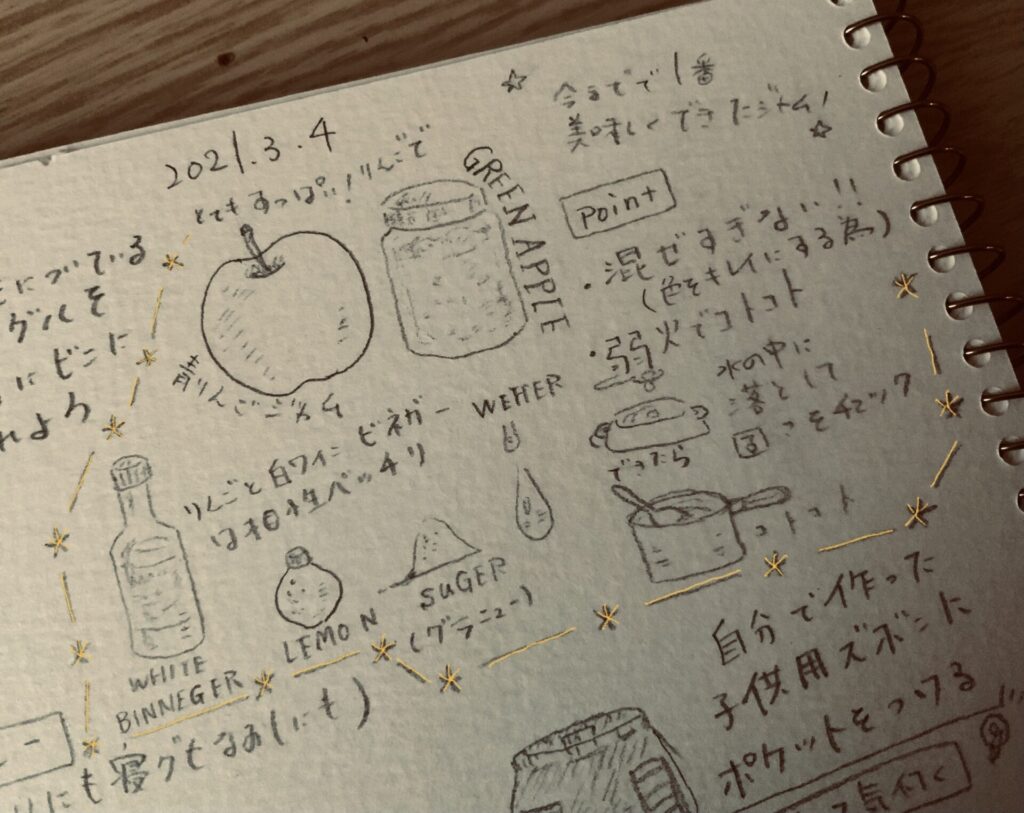 2021.3.4
☆ 今までで1番
美味しくできたジャム! ☆
とてもすっぱい!りんごで
GREEN APPLE
青りんごジャム
Point
・混ぜすぎない!!
(色をキレイにする為)
・弱火でコトコト
水の中に
落として
チェック
できたら
コトコト
りんごと白ワインビネガー
は相性バッチリ
WETTER
WHITE
BINNEGER
LEMON
SUGER
(グラニュー)
についている
グルを
にビンに
れよう
自分で作った
子供用ズボンに
ポケットをつける
にも寝グセなおしにも)
気付く